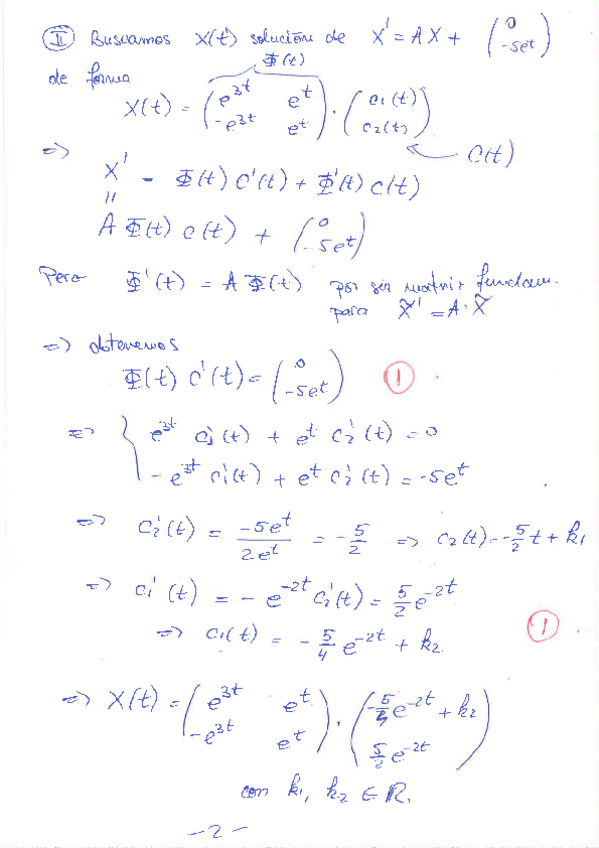 II Buscamos X(t) solución de X' = A X + (0 / -5e^t)
de forma Φ(t)
X(t) = (e^{3t} e^t / -e^{3t} e^t) · (c1(t) / c2(t))
=> C(t)
X' = Φ(t) C'(t) + Φ'(t) C(t)
"
A Φ(t) C(t) + (0 / -5e^t)
Pero Φ'(t) = A Φ(t) por ser matriz fundam.
para X̃' = A · X̃
=> obtenemos
Φ(t) C'(t) = (0 / -5e^t) 1 .
=> { e^{3t} c1'(t) + e^t c2'(t) = 0
-e^{3t} c1'(t) + e^t c2'(t) = -5e^t
=> c2'(t) = -5e^t / 2e^t = -5/2 => c2(t) = -5/2 t + k1
=> c1'(t) = -e^{-2t} c2'(t) = 5/2 e^{-2t}
=> c1(t) = -5/4 e^{-2t} + k2 1 .
=> X(t) = (e^{3t} e^t / -e^{3t} e^t) · (-5/4 e^{-2t} + k2 / 5/2 e^{-2t})
con k1, k2 ∈ ℝ.
-2-